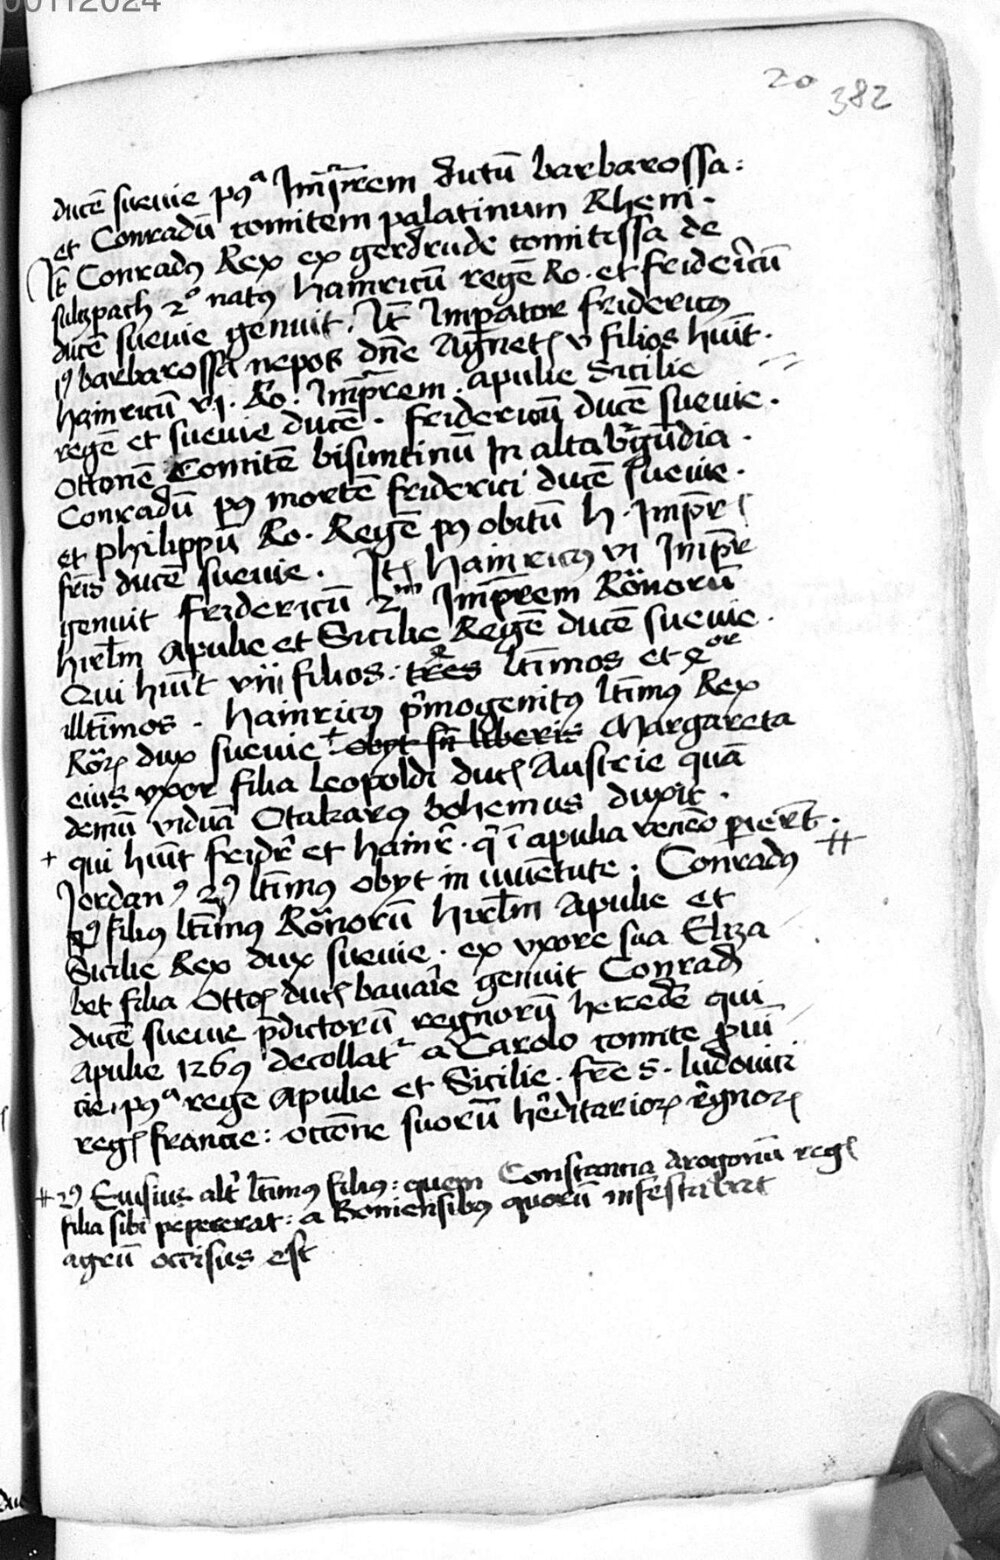 00112024
20 382
ducē suevie pꝯᵃ Imp̄rem dictū barbarossa :
et Conradū comitem palatinum Rheni .
It̄ Conradꝯ Rex ex gerdrude comitissa de
sulczpach 2º natꝯ hainricū regē Ro . et fridericū
ducē suevie genuit . It̄ Imp̄ator fridericꝯ
pꝯ barbarossa nepos dn̄e Agnetꝭ v filios huīt .
hainricū vi . Ro . Imp̄rem . apulie Sicilie
regē et suevie ducē . fridericū ducē suevie .
Ottonē Comitē bisuntinū In alta bꝰgūdia .
Conradū pꝯ mortē friderici ducē suevie .
et philippū Ro . Regē pꝯ obitū h . Imp̄rꝭ
fr̄is ducē suevie . Itꝭ hainricꝯ vi Imp̄r
genuit fridericū 2ᵐ Imp̄rem Ro͞norū
hirl̄m Apulie et Sicilie Regē ducē suevie .
Qui huīt viii filios : tres lt̄imos et qºʳ
illt̄imos . hainricꝯ p̄mogenitꝯ lt̄imꝯ Rex
Ro͞rꝝ dux suevie + obyt sn̄ liberis Margareta
eius vxor filia Leopoldi ducꝭ Austrie quā
demū viduā Otakarꝯ bohemus duxit .
+ qui huīt fridr̄ et hainr̄ . q̄ ī apulia veneo perier̄t .
Jordanꝰ 2ꝯ lt̄imꝯ obyt in iuuētute . Conradꝯ #
filiꝯ lt̄imꝯ Ro͞norū hirl̄m Apulie et
Sicilie Rex dux suevie . ex vxore sua Eliza
bet filia Ottoꝭ ducꝭ bavarie genuit Conradꝯ
ducē suevie p̄dictorū regnorū heredē qui
Apulie 1269 decollatʳ a Carolo comite p̱ui
cie . pꝯᵃ rege Apulie et Sicilie . fr̄e s . ludouici
regꝭ francie : occōne suorū hēditarioꝝ r̄gnoꝝ
# 2ꝯ Ensius alt̄ lt̄imꝯ filiꝯ : quem Constancia Arogonū regꝭ
filia sibi pepererat : a Boniensibꝯ quorū infestabat
agrū occisus est